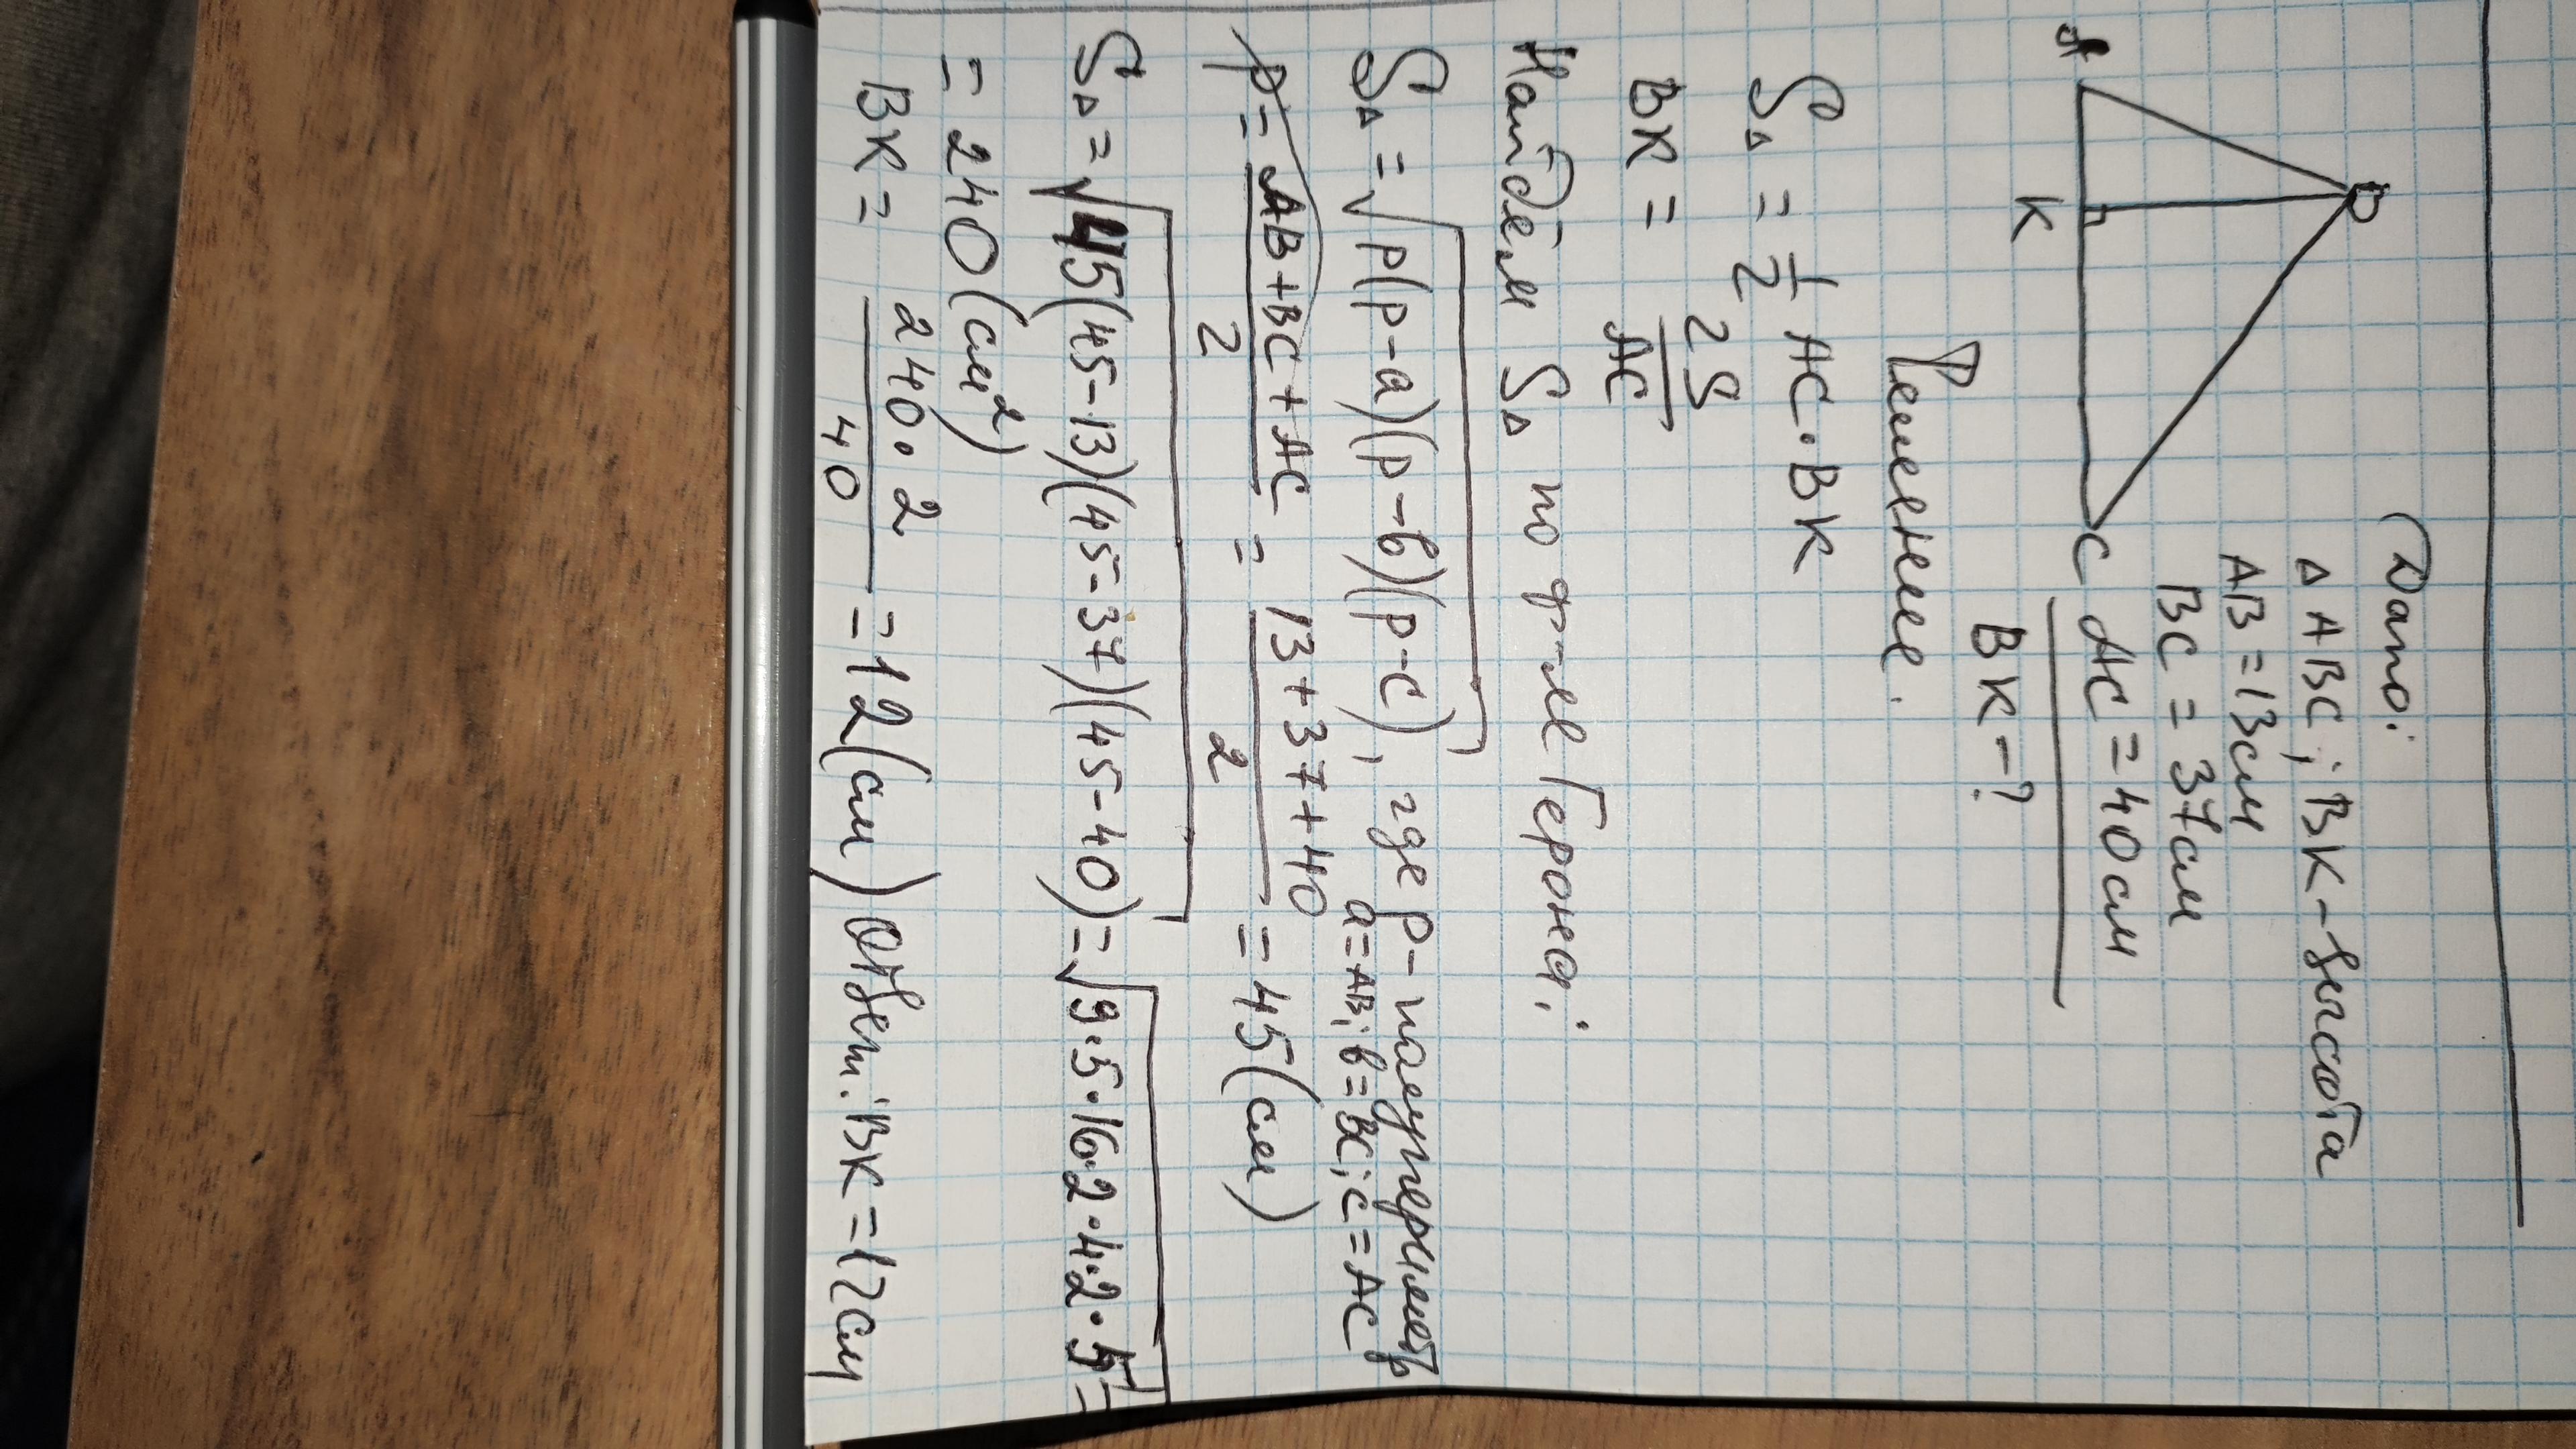 Дано:
△ABC; BK - высота
AB = 13см
BC = 37см
AC = 40см
BK - ?
B
A
K
C
Решение.
S△ = 1/2 AC · BK
BK = 2S/AC
Найдём S△ по ф-ле Герона:
S△ = √p(p-a)(p-b)(p-c), где p - полупериметр
a=AB; b=BC; c=AC
p = AB+BC+AC/2 = 13+37+40/2 = 45(см)
S△ = √45(45-13)(45-37)(45-40) = √9·5·16·2·4·2·5 =
= 240(см²)
BK = 240·2/40 = 12(см) Ответ: BK = 12см